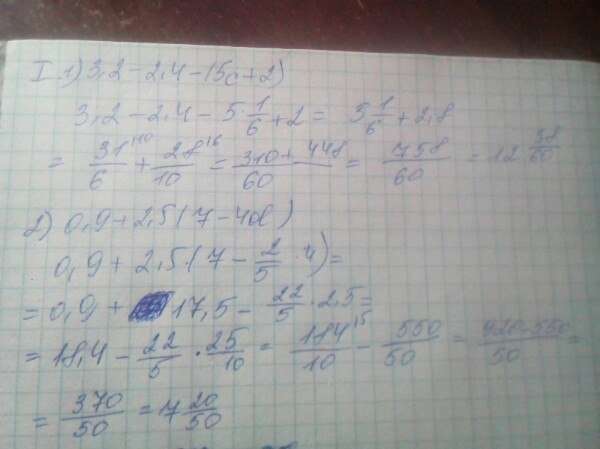 I. 1) 3,2 - 2,4 - (5c + 2)
3,2 - 2,4 - 5·1/6 + 2 = 5 1/6 + 2,8
= 31^{\10}/6 + 28^{\16}/10 = 310 + 448/60 = 758/60 = 12 38/60
2) 0,9 + 2,5(7 - 4d)
0,9 + 2,5·(7 - 2/5·4) =
= 0,9 + 17,5 - 22/5 · 2,5 =
= 18,4 - 22/5 · 25/10 = 184^{\5}/10 - 550/50 = 920-550/50 =
= 370/50 = 7 20/50